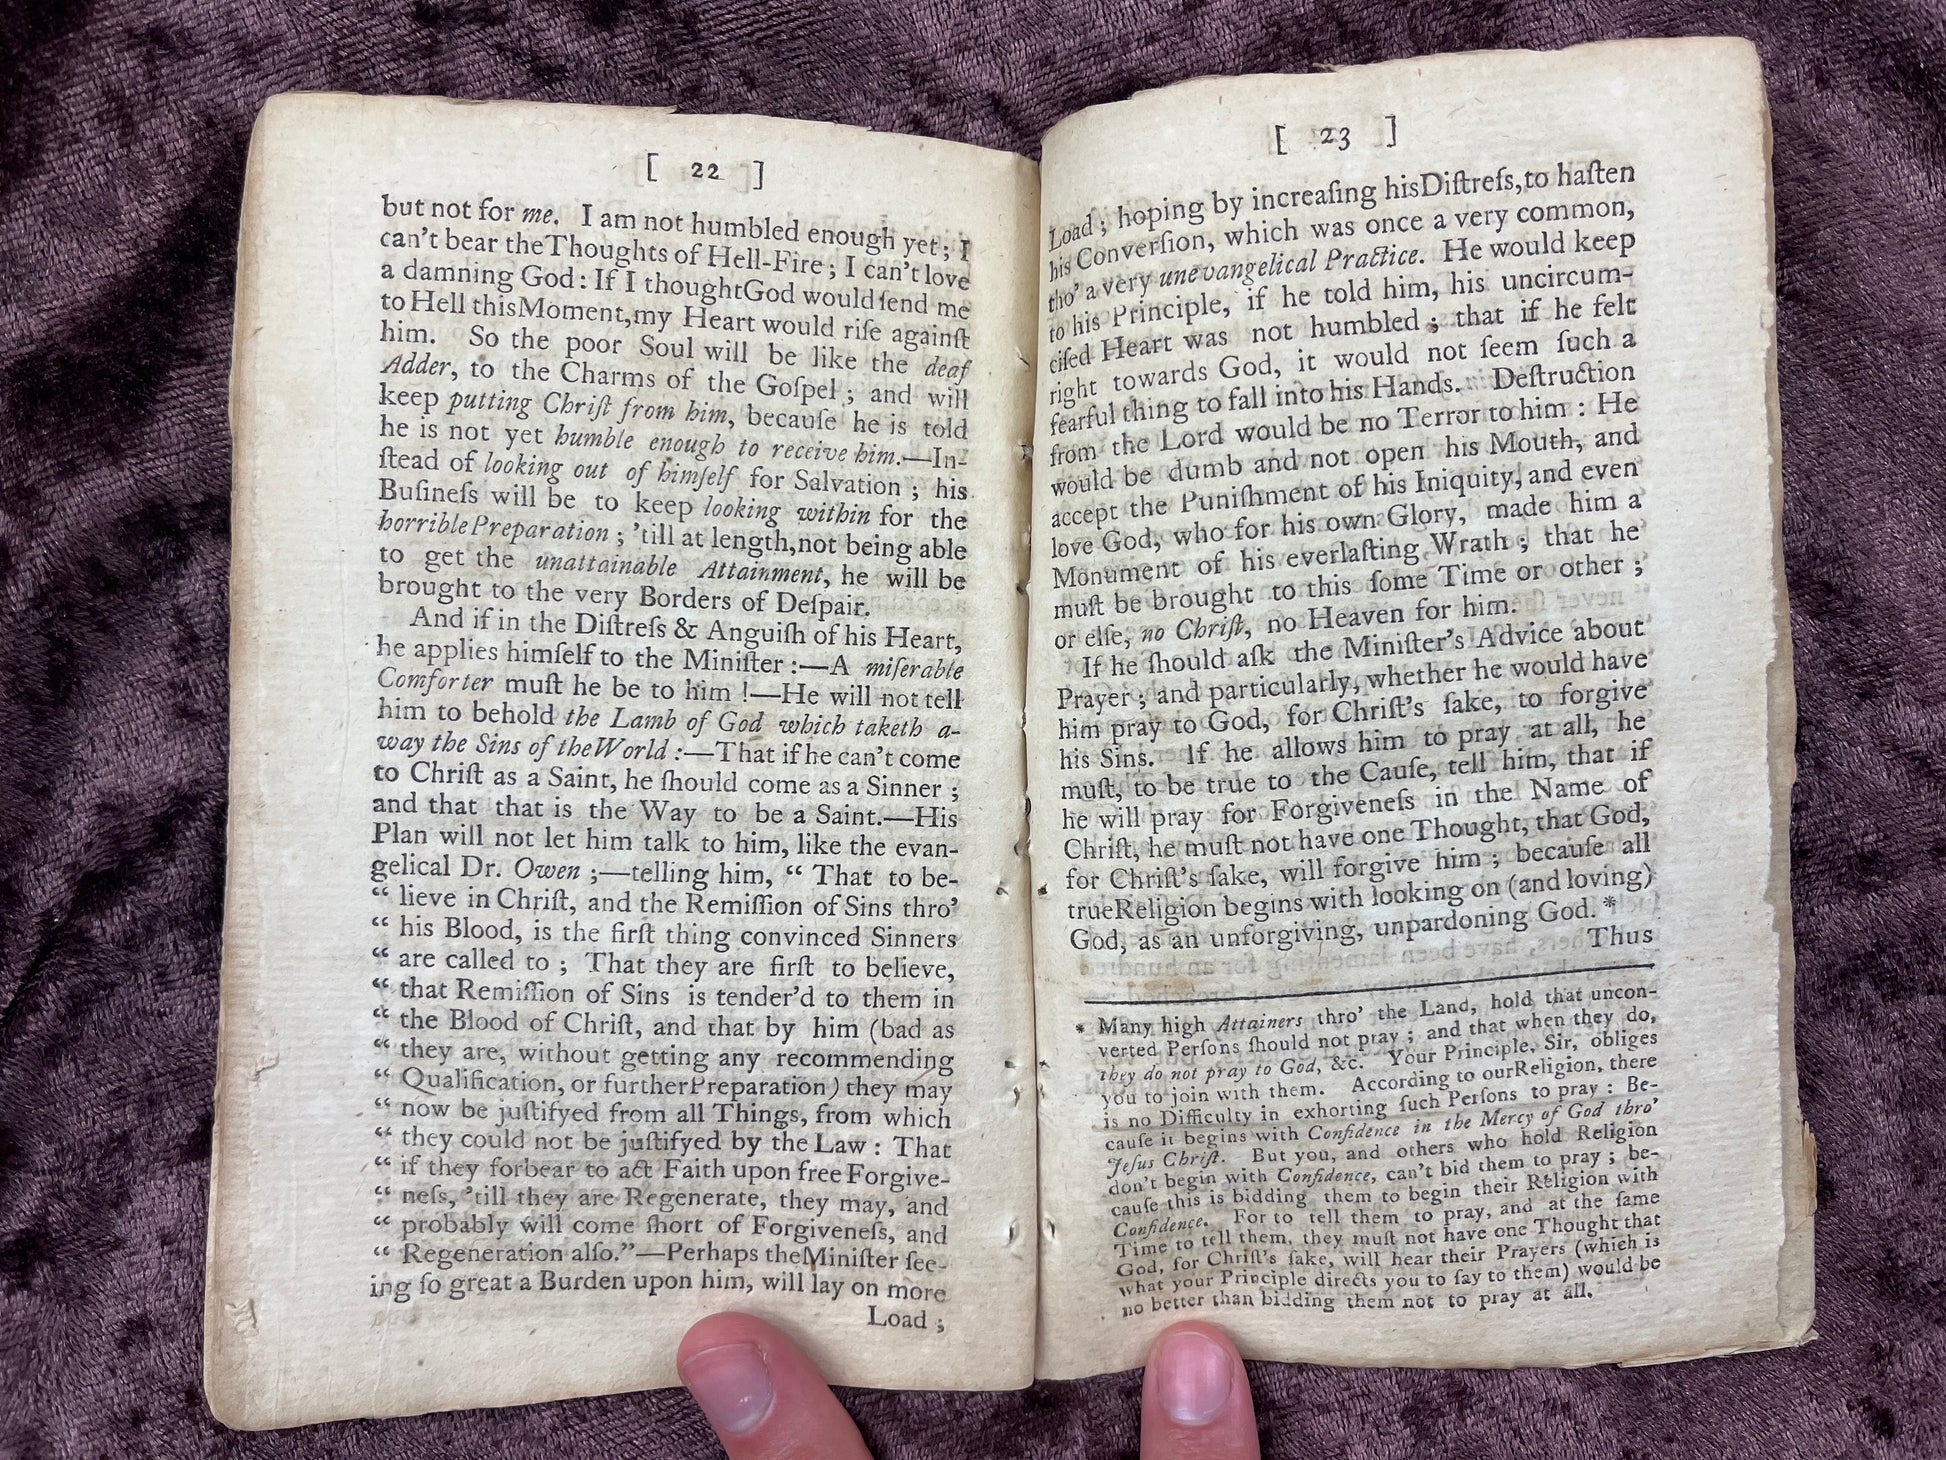 [ 22 ]
but not for me. I am not humbled enough yet; I
can't bear the Thoughts of Hell-Fire; I can't love
a damning God: If I thought God would ſend me
to Hell this Moment, my Heart would riſe againſt
him. So the poor Soul will be like the deaf
Adder, to the Charms of the Goſpel; and will
keep putting Chriſt from him, becauſe he is told
he is not yet humble enough to receive him.—In-
ſtead of looking out of himſelf for Salvation; his
Buſineſs will be to keep looking within for the
horrible Preparation; 'till at length, not being able
to get the unattainable Attainment, he will be
brought to the very Borders of Deſpair.
And if in the Diſtreſs & Anguiſh of his Heart,
he applies himſelf to the Miniſter:—A miſerable
Comforter muſt he be to him!—He will not tell
him to behold the Lamb of God which taketh a-
way the Sins of the World:—That if he can't come
to Chriſt as a Saint, he ſhould come as a Sinner;
and that that is the Way to be a Saint.—His
Plan will not let him talk to him, like the evan-
gelical Dr. Owen;—telling him, “ That to be-
“ lieve in Chriſt, and the Remiſſion of Sins thro'
“ his Blood, is the firſt thing convinced Sinners
“ are called to; That they are firſt to believe,
“ that Remiſſion of Sins is tender'd to them in
“ the Blood of Chriſt, and that by him (bad as
“ they are, without getting any recommending
“ Qualification, or further Preparation) they may
“ now be juſtifyed from all Things, from which
“ they could not be juſtifyed by the Law: That
“ if they forbear to act Faith upon free Forgive-
“ neſs, 'till they are Regenerate, they may, and
“ probably will come ſhort of Forgiveneſs, and
“ Regeneration alſo.”—Perhaps the Miniſter ſee-
ing ſo great a Burden upon him, will lay on more
Load;
[ 23 ]
Load; hoping by increaſing his Diſtreſs, to haſten
his Converſion, which was once a very common,
tho' a very unevangelical Practice. He would keep
to his Principle, if he told him, his uncircum-
ciſed Heart was not humbled; that if he felt
right towards God, it would not ſeem ſuch a
fearful thing to fall into his Hands. Deſtruction
from the Lord would be no Terror to him: He
would be dumb and not open his Mouth, and
accept the Puniſhment of his Iniquity, and even
love God, who for his own Glory, made him a
Monument of his everlaſting Wrath; that he
muſt be brought to this ſome Time or other;
or elſe, no Chriſt, no Heaven for him.
If he ſhould aſk the Miniſter's Advice about
Prayer; and particularly, whether he would have
him pray to God, for Chriſt's ſake, to forgive
his Sins. If he allows him to pray at all, he
muſt, to be true to the Cauſe, tell him, that if
he will pray for Forgiveneſs in the Name of
Chriſt, he muſt not have one Thought, that God,
for Chriſt's ſake, will forgive him; becauſe all
true Religion begins with looking on (and loving)
God, as an unforgiving, unpardoning God.*
Thus
* Many high Attainers thro' the Land, hold that uncon-
verted Perſons ſhould not pray; and that when they do,
they do not pray to God, &c. Your Principle, Sir, obliges
you to join with them. According to our Religion, there
is no Difficulty in exhorting ſuch Perſons to pray: Be-
cauſe it begins with Confidence in the Mercy of God thro'
Jeſus Chriſt. But you, and others who hold Religion
don't begin with Confidence, can't bid them to pray; be-
cauſe this is bidding them to begin their Religion with
Confidence. For to tell them to pray, and at the ſame
Time to tell them, they muſt not have one Thought that
God, for Chriſt's ſake, will hear their Prayers (which is
what your Principle directs you to ſay to them) would be
no better than bidding them not to pray at all.